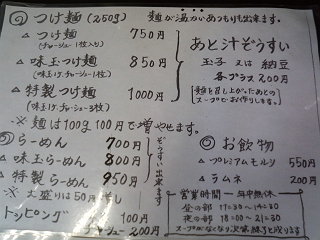 つけ麺(250g) 麺が湯力いあつもりも出来ます。
△ つけ麺 750円
(チャーシュー1枚入り)
△ 味玉つけ麺 850円
(味玉1ケ.チャーシュー1枚)
△ 特製つけ麺 1000円
(味玉1ケ.チャーシュー3枚)
あと汁ぞうすい
玉子 又は 納豆
各プラス200円
(麺を召し上がったあとの
スープでお作りします。)
※ 麺は100g 100円で増やせます。
らーめん 700円
△ 味玉らーめん 800円
△ 特製らーめん 950円
ぞうすい出来ます
※ 大盛りは50円増し
トッピング 100円
チャシュー200円
◎ お飲物
△ プレミアムモルツ 550円
△ ラムネ 200円
営業時間 年中無休
昼の部 11:30〜14:30
夜の部 18:00〜21:30
スープがなくなり次第終了と成ります